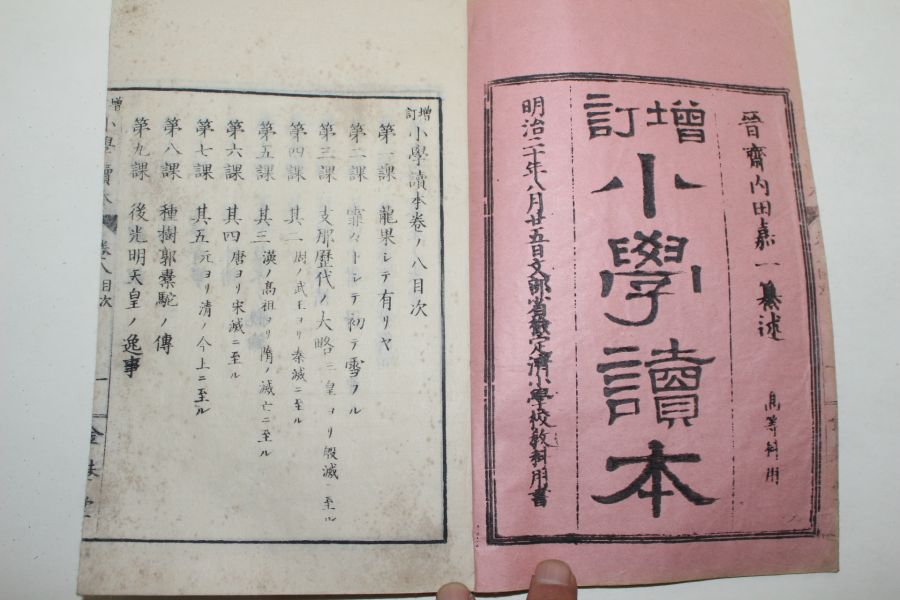 晉齋內田嘉一纂述
高等科用
增訂
小學讀本
明治二十年八月廿五日文部省檢定濟小學校教科用書
增訂小學讀本卷ノ八目次
第一課 龍果シテ有リヤ
第二課 霏々トシテ初テ雪フル
第三課 支那歷代ノ大略 三皇ヨリ殷滅ニ至ル
第四課 其二 周ノ武王ヨリ秦滅ニ至ル
第五課 其三 漢ノ高祖ヨリ隋ノ滅亡ニ至ル
第六課 其四 唐ヨリ宋滅ニ至ル
第七課 其五 元ヨリ清ノ今上ニ至ル
第八課 種樹郭橐駝ノ傳
第九課 後光明天皇ノ逸事
增 小學讀本 卷八目次 一